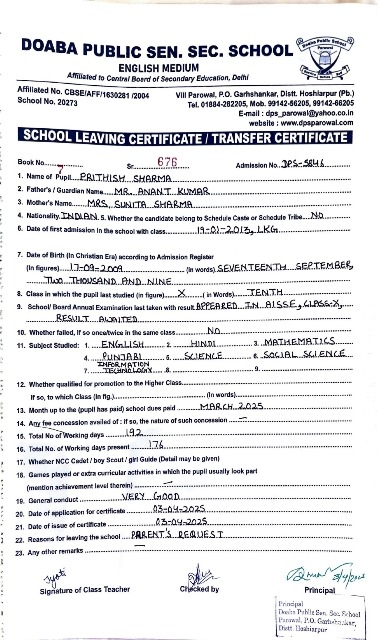 DOABA PUBLIC SEN. SEC. SCHOOL
ENGLISH MEDIUM
Affiliated to Central Board of Secondary Education, Delhi
Affiliated No. CBSE/AFF/1630281 /2004
School No. 20273
Vill Parowal, P.O. Garhshankar, Distt. Hoshiarpur (Pb.)
Tel. 01884-282205, Mob. 99142-56205, 99142-66205
E-mail : dps_parowal@yahoo.co.in
website : www.dpsparowal.com
SCHOOL LEAVING CERTIFICATE / TRANSFER CERTIFICATE
Book No. 7 Sr. 676 Admission No. DPS-5846
1. Name of Pupil PRITHISH SHARMA
2. Father's / Guardian Name MR. ANANT KUMAR
3. Mother's Name MRS. SUNITA SHARMA
4. Nationality INDIAN 5. Whether the candidate belong to Schedule Caste or Schedule Tribe NO
6. Date of first admission in the school with class 19-01-2013, LKG
7. Date of Birth (In Christian Era) according to Admission Register
(In figures) 17-09-2009 (In words) SEVENTEENTH SEPTEMBER,
TWO THOUSAND AND NINE
8. Class in which the pupil last studied (in figure) X ( in Words) TENTH
9. School/ Board Annual Examination last taken with result APPEARED IN AISSE, CLASS-X,
RESULT AWAITED
10. Whether failed, If so once/twice in the same class NO
11. Subject Studied: 1. ENGLISH 2. HINDI 3. MATHEMATICS
4. PUNJABI 5. SCIENCE 6. SOCIAL SCIENCE
7. INFORMATION TECHNOLOGY 8. 9.
12. Whether qualified for promotion to the Higher Class
If so, to which Class (In fig.) (In words)
13. Month up to the (pupil has paid) school dues paid MARCH, 2025
14. Any fee concession availed of : if so, the nature of such concession —
15. Total No of Working days 192
16. Total No. of Working days present 176
17. Whether NCC Cadet / boy Scout / girl Guide (Detail may be given)
18. Games played or extra curricular activities in which the pupil usually took part
(mention achievement level therein) —
19. General conduct VERY GOOD
20. Date of application for certificate 03-04-2025
21. Date of issue of certificate 03-04-2025
22. Reasons for leaving the school PARENT'S REQUEST
23. Any other remarks —
Jyoti
Signature of Class Teacher
Checked by
Principal
Principal
Doaba Public Sen. Sec. School
Parowal, P.O. Garhshankar,
Distt. Hoshiarpur